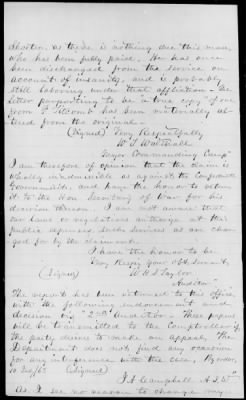 Shorter, as there is nothing due this man,
who has been fully paid. He has once
been discharged from the service on
account of insanity, and is probably
still laboring under that affliction. The
letter purporting to be a true copy of one
from Titcomb has been materially al
tered from the original.
(Signed) Very Respectfully
W. T. Walthall
Major Commanding Camp"
I am therefore of opinion that the claim is
wholly inadmissible as against the Confederate
Government, and have the honor to return
it to the Hon. Secretary of War for his
decision thereon. I am not aware that
our laws or regulations authorize at the
public expense, such services as are char
ged for by the claimant.
I have the honor to be
Very Respy your obt. servant,
(Signed) W. H. S. Taylor
Auditor"
The report has been returned to this office,
with the following endorsement and
decision viz "2nd Auditor. These papers
will be transmitted to the Comptroller if
the party desires to make an appeal. The
Department does not find any occasion
for any interference with the case, By order,
(Signed)
J. A. Campbell A. S. W"
As I see no reason to change my